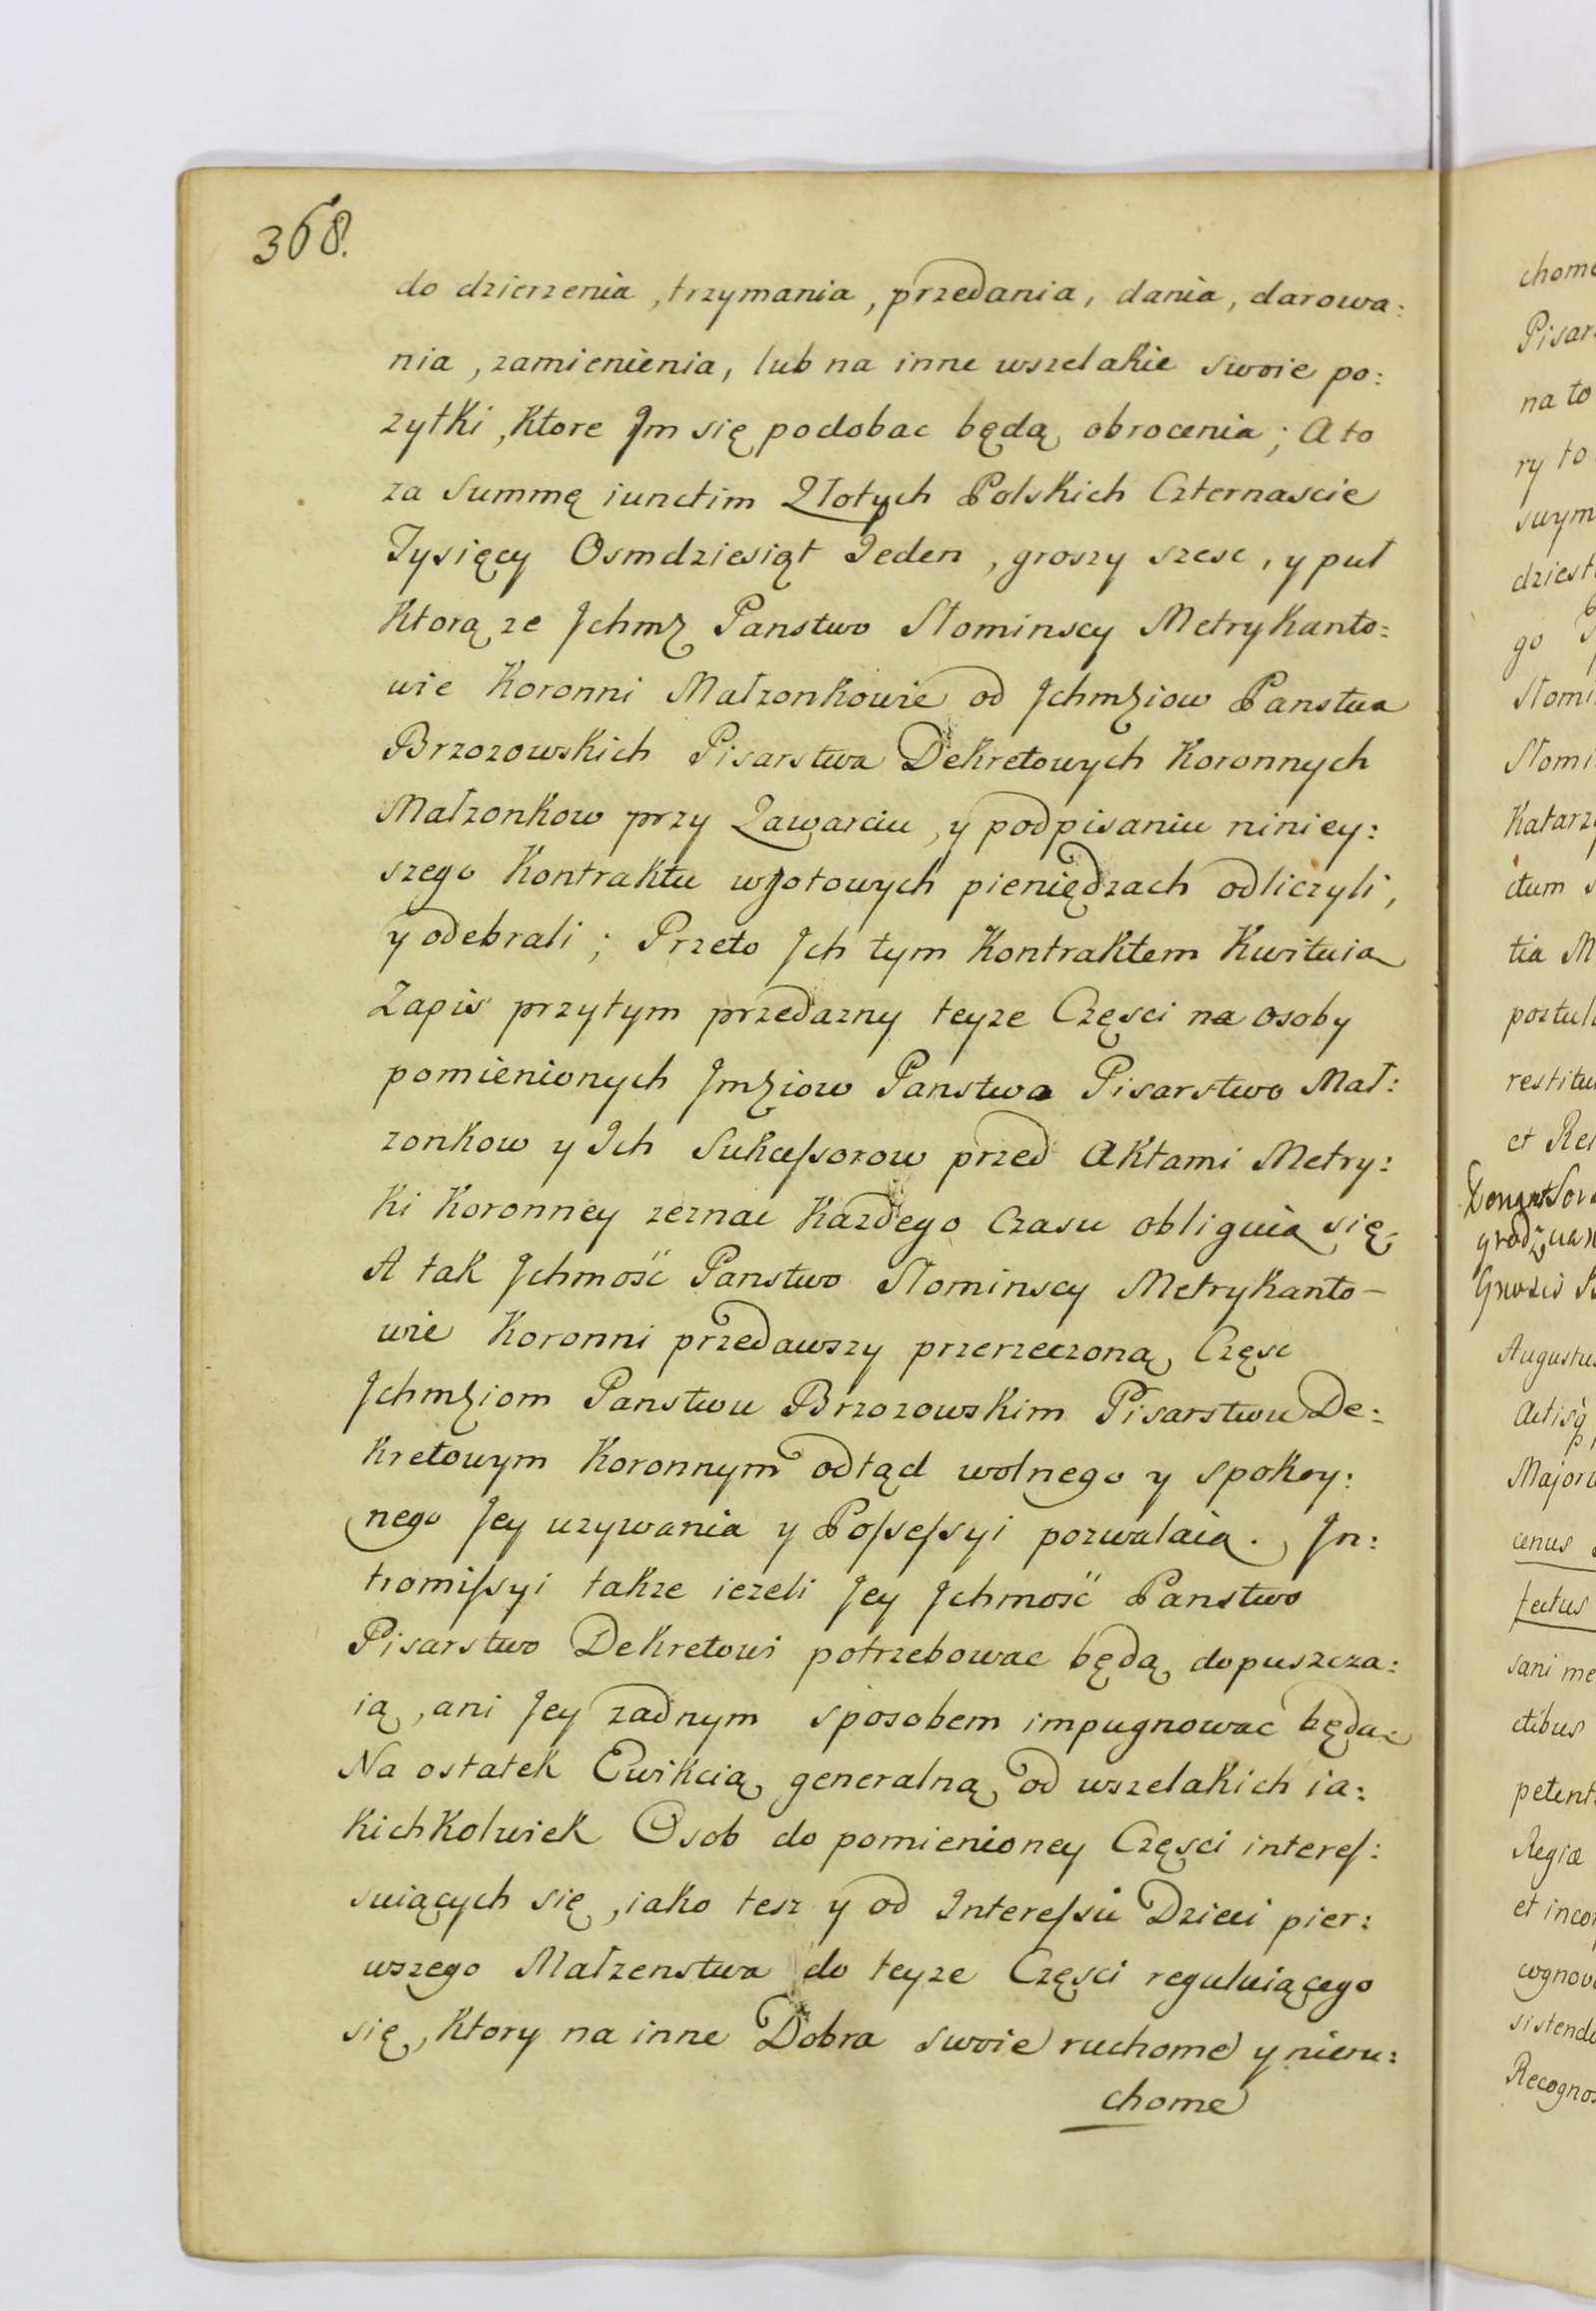 368.
do dzierzenia, trzymania, przedania, dania, darowa:
nia, zamienienia, lub na inne wszelakie swoie po:
zytki, Ktore Jm się podobac będą obrocenia; A to
za Summę iunctim Złotych Polskich Czternascie
Tysięcy Osmdziesiąt Jeden, groszy szesc, y puł
Ktorą ze Jchmz Panstwo Słominscy Metrykanto:
wie Koronni Małzonkowie od Jchmziow Panstwa
Brzozowskich Pisarstwa Dekretowych Koronnych
Małzonkow przy Zawarciu, y podpisaniu niniey:
szego Kontraktu w gotowych pieniędzach odliczyli,
y odebrali; Przeto Jch tym Kontraktem Kwituią
Zapis przytym przedazny teyze Częsci na osoby
pomienionych Jmziow Panstwa Pisarstwo Mał:
zonkow y Jch Sukceſsorow przed Aktami Metry:
ki Koronney zeznac Kazdego Czasu obliguią się
A tak Jchmość Panstwo Słominscy Metrykanto-
wie Koronni przedawszy przerzeczoną Częsc
Jchmziom Panstwu Brzozowskim Pisarstwu De:
kretowym Koronnym odtąd wolnego y spokoy:
nego Jey uzywania y Poſseſsyi pozwalaią. Jn:
tromiſsyi takze iezeli Jey Jchmość Panstwo
Pisarstwo Dekretowi potrzebowac będą dopuszcza:
ią, ani Jey zadnym sposobem impugnowac będą
Na ostatek Ewikcią generalną od wszelakich ia:
kichkolwiek Osob do pomienioney Częsci intereſ:
suiących się, iako tesz y od Jntereſsu Dzieci pier:
wszego Małzenstwa do teyze Częsci reguluiącego
się, Ktory na inne Dobra swoie ruchome y nieru:
chome
Pisar
na to
ry to
swym
dziest
go
Słomi
Słomi
Katarz
ctum
tia M
postul
restitu
et
Augustus
Actisq
Major
cenus
fectus
sani me
ctibus
petent
Regiæ
et inco
cognov
sistend
Recognos